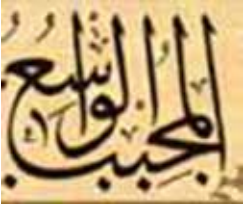 المجيب الواسع